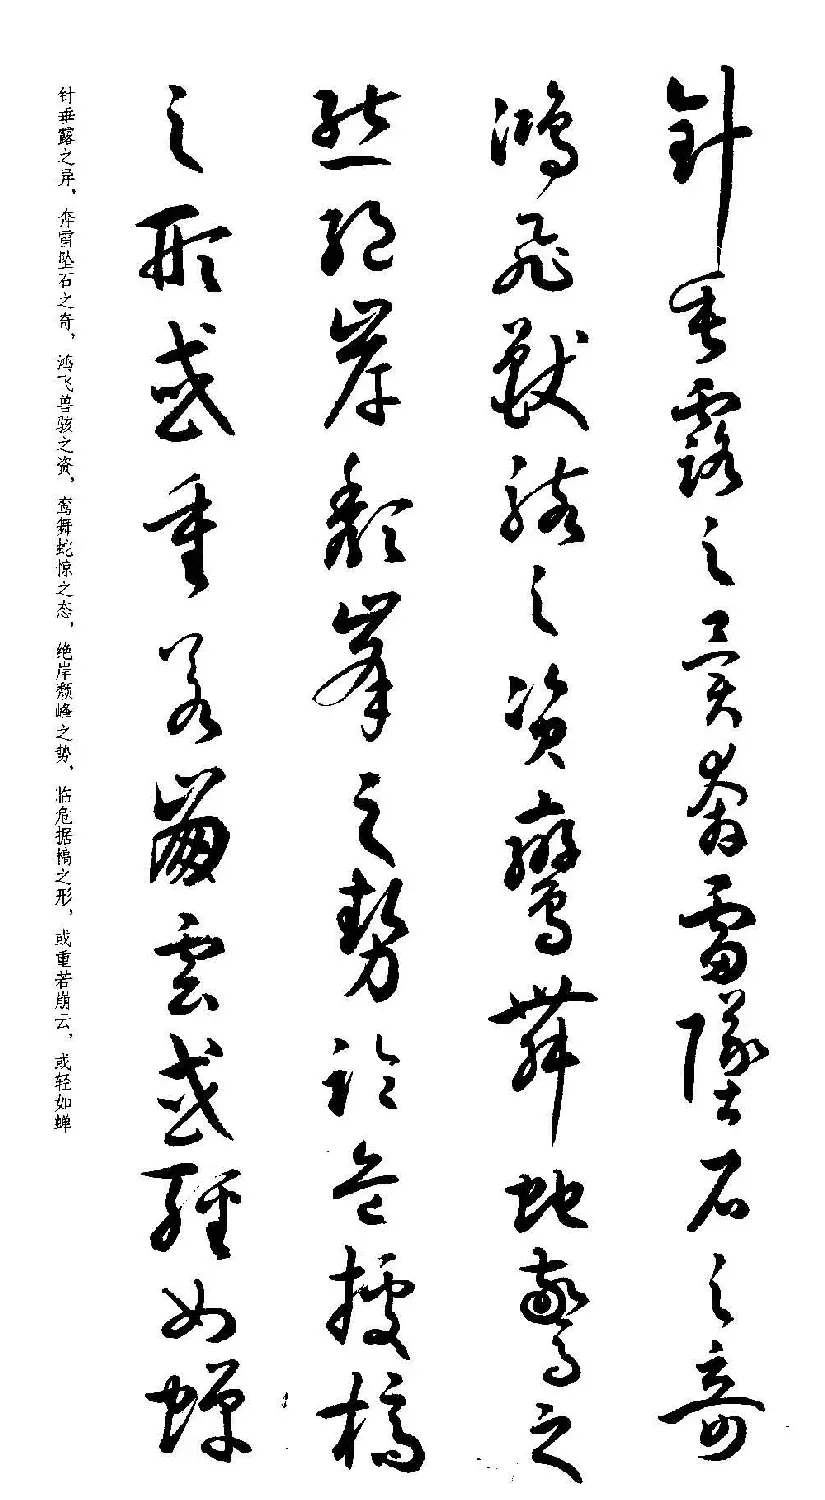 針垂露之異奔雷墜石之奇
鴻飛獸駭之資鸞舞蛇驚之
態絕岸頹峯之勢臨危據槁
之形或重若崩雲或輕如蟬
针垂露之异，奔雷坠石之奇，鸿飞兽骇之资，鸾舞蛇惊之态，绝岸颓峰之势，临危据槁之形，或重若崩云，或轻如蝉